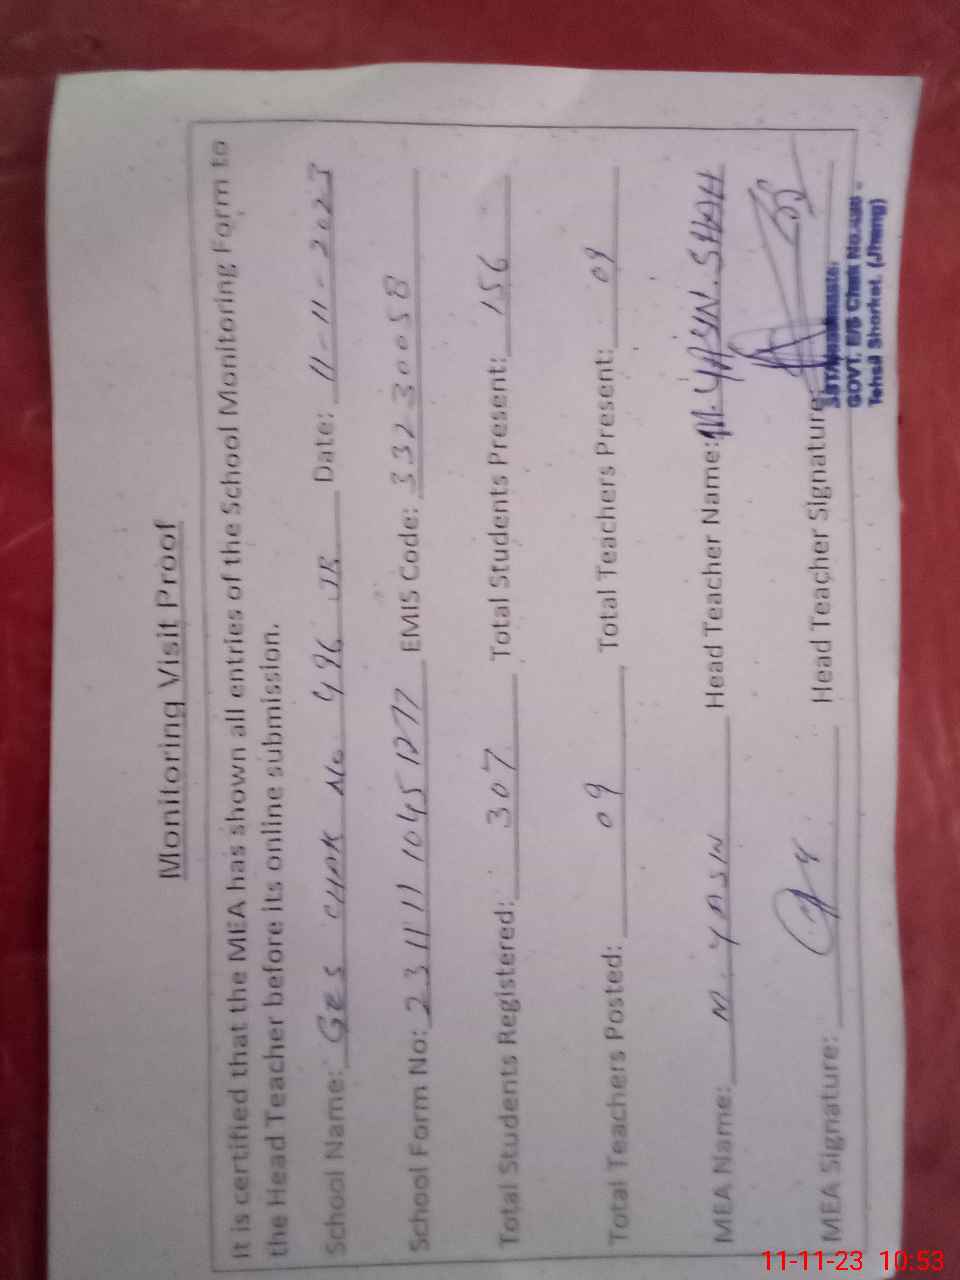 Monitoring Visit Proof
It is certified that the MEA has shown all entries of the School Monitoring Form to
the Head Teacher before its online submission.
School Name: GES CHAK No. 496 JB Date: 11-11-2023
School Form No: 23111110451277 EMIS Code: 33230058
Total Students Registered: 307 Total Students Present: 156
Total Teachers Posted: 09 Total Teachers Present: 09
MEA Name: M. YASIN Head Teacher Name: M. YASIN. SHAH
MEA Signature: Head Teacher Signature:
GOVT. E/S Chak No.
Tehsil Shorkot. (Jhang)
11-11-23 10:53